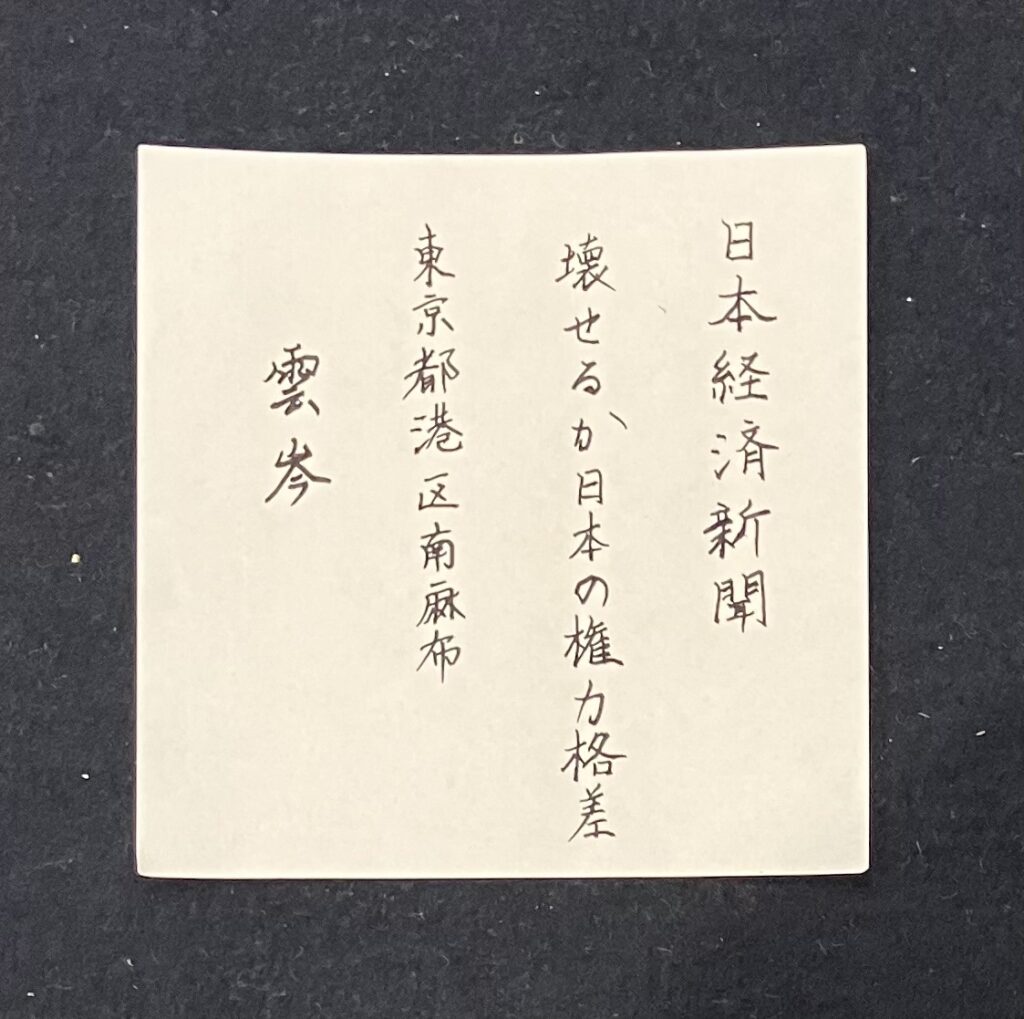 日本経済新聞
壊せるか日本の権力格差
東京都港区南麻布
雲岑